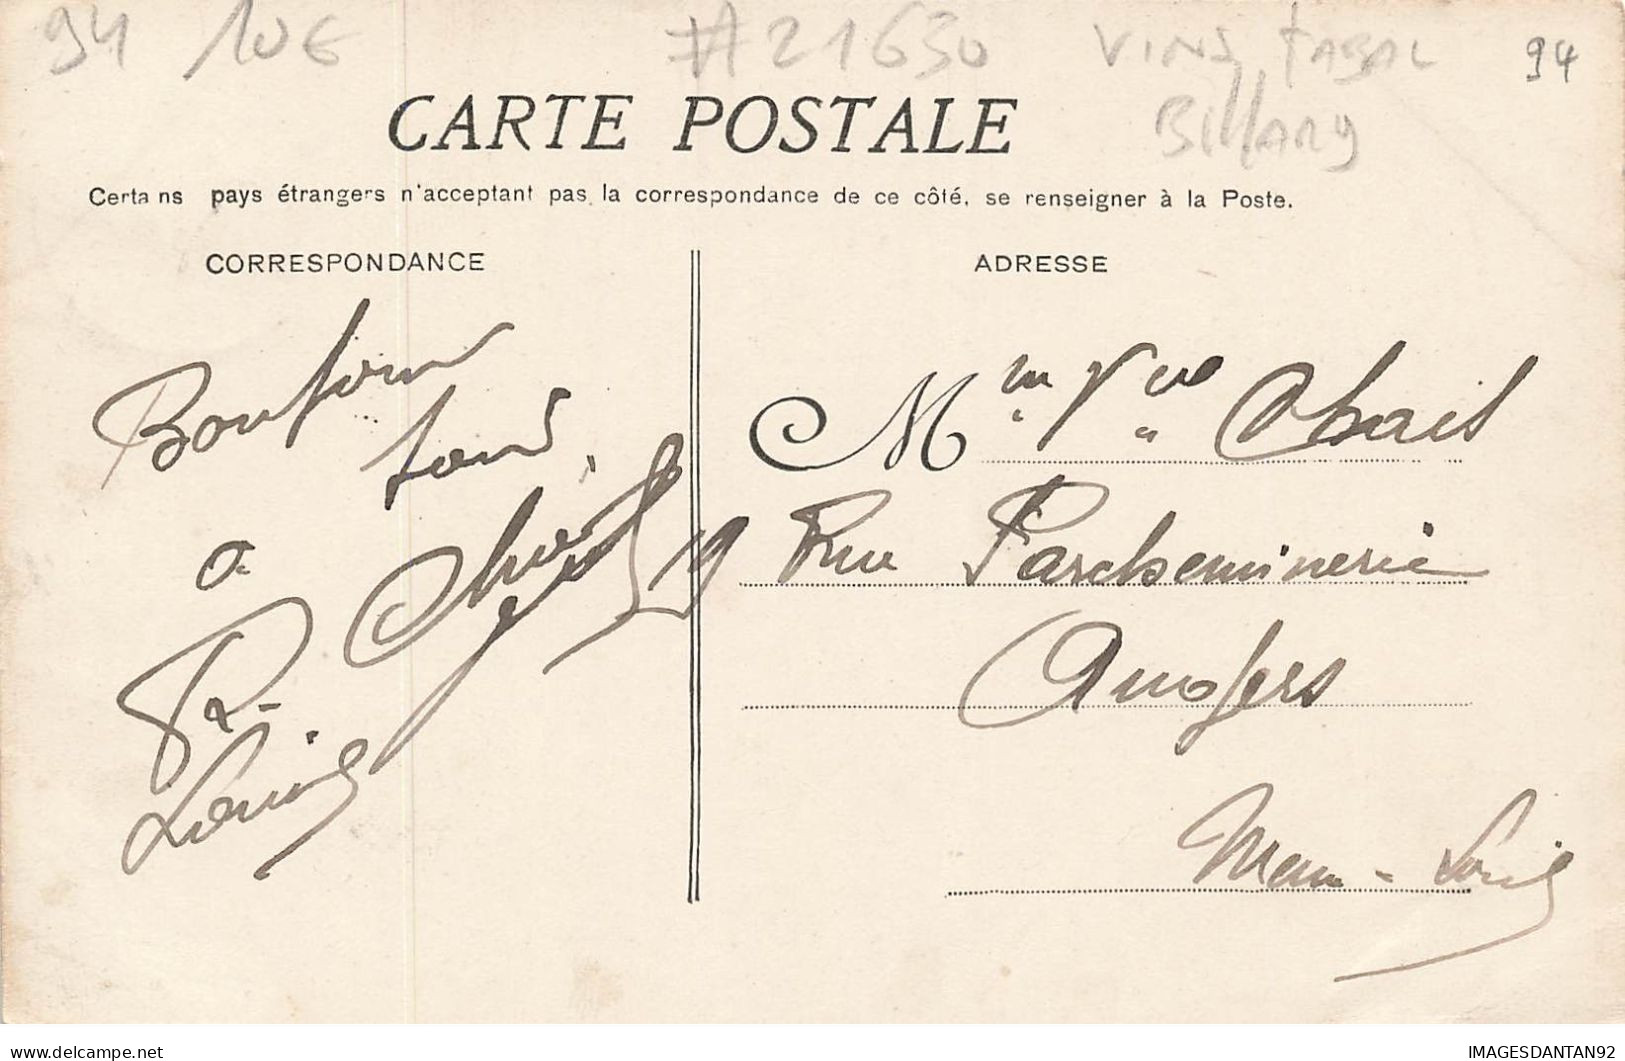 94 10€ #21630 VINS TABAC 94
BILLARD
CARTE POSTALE
Certains pays étrangers n'acceptant pas la correspondance de ce côté, se renseigner à la Poste.
CORRESPONDANCE
ADRESSE
Bonjour
à
Louis
Mm Vve Chail
19 Rue Parcheminerie
Angers
Men-Loire
IMAGESDANTAN92